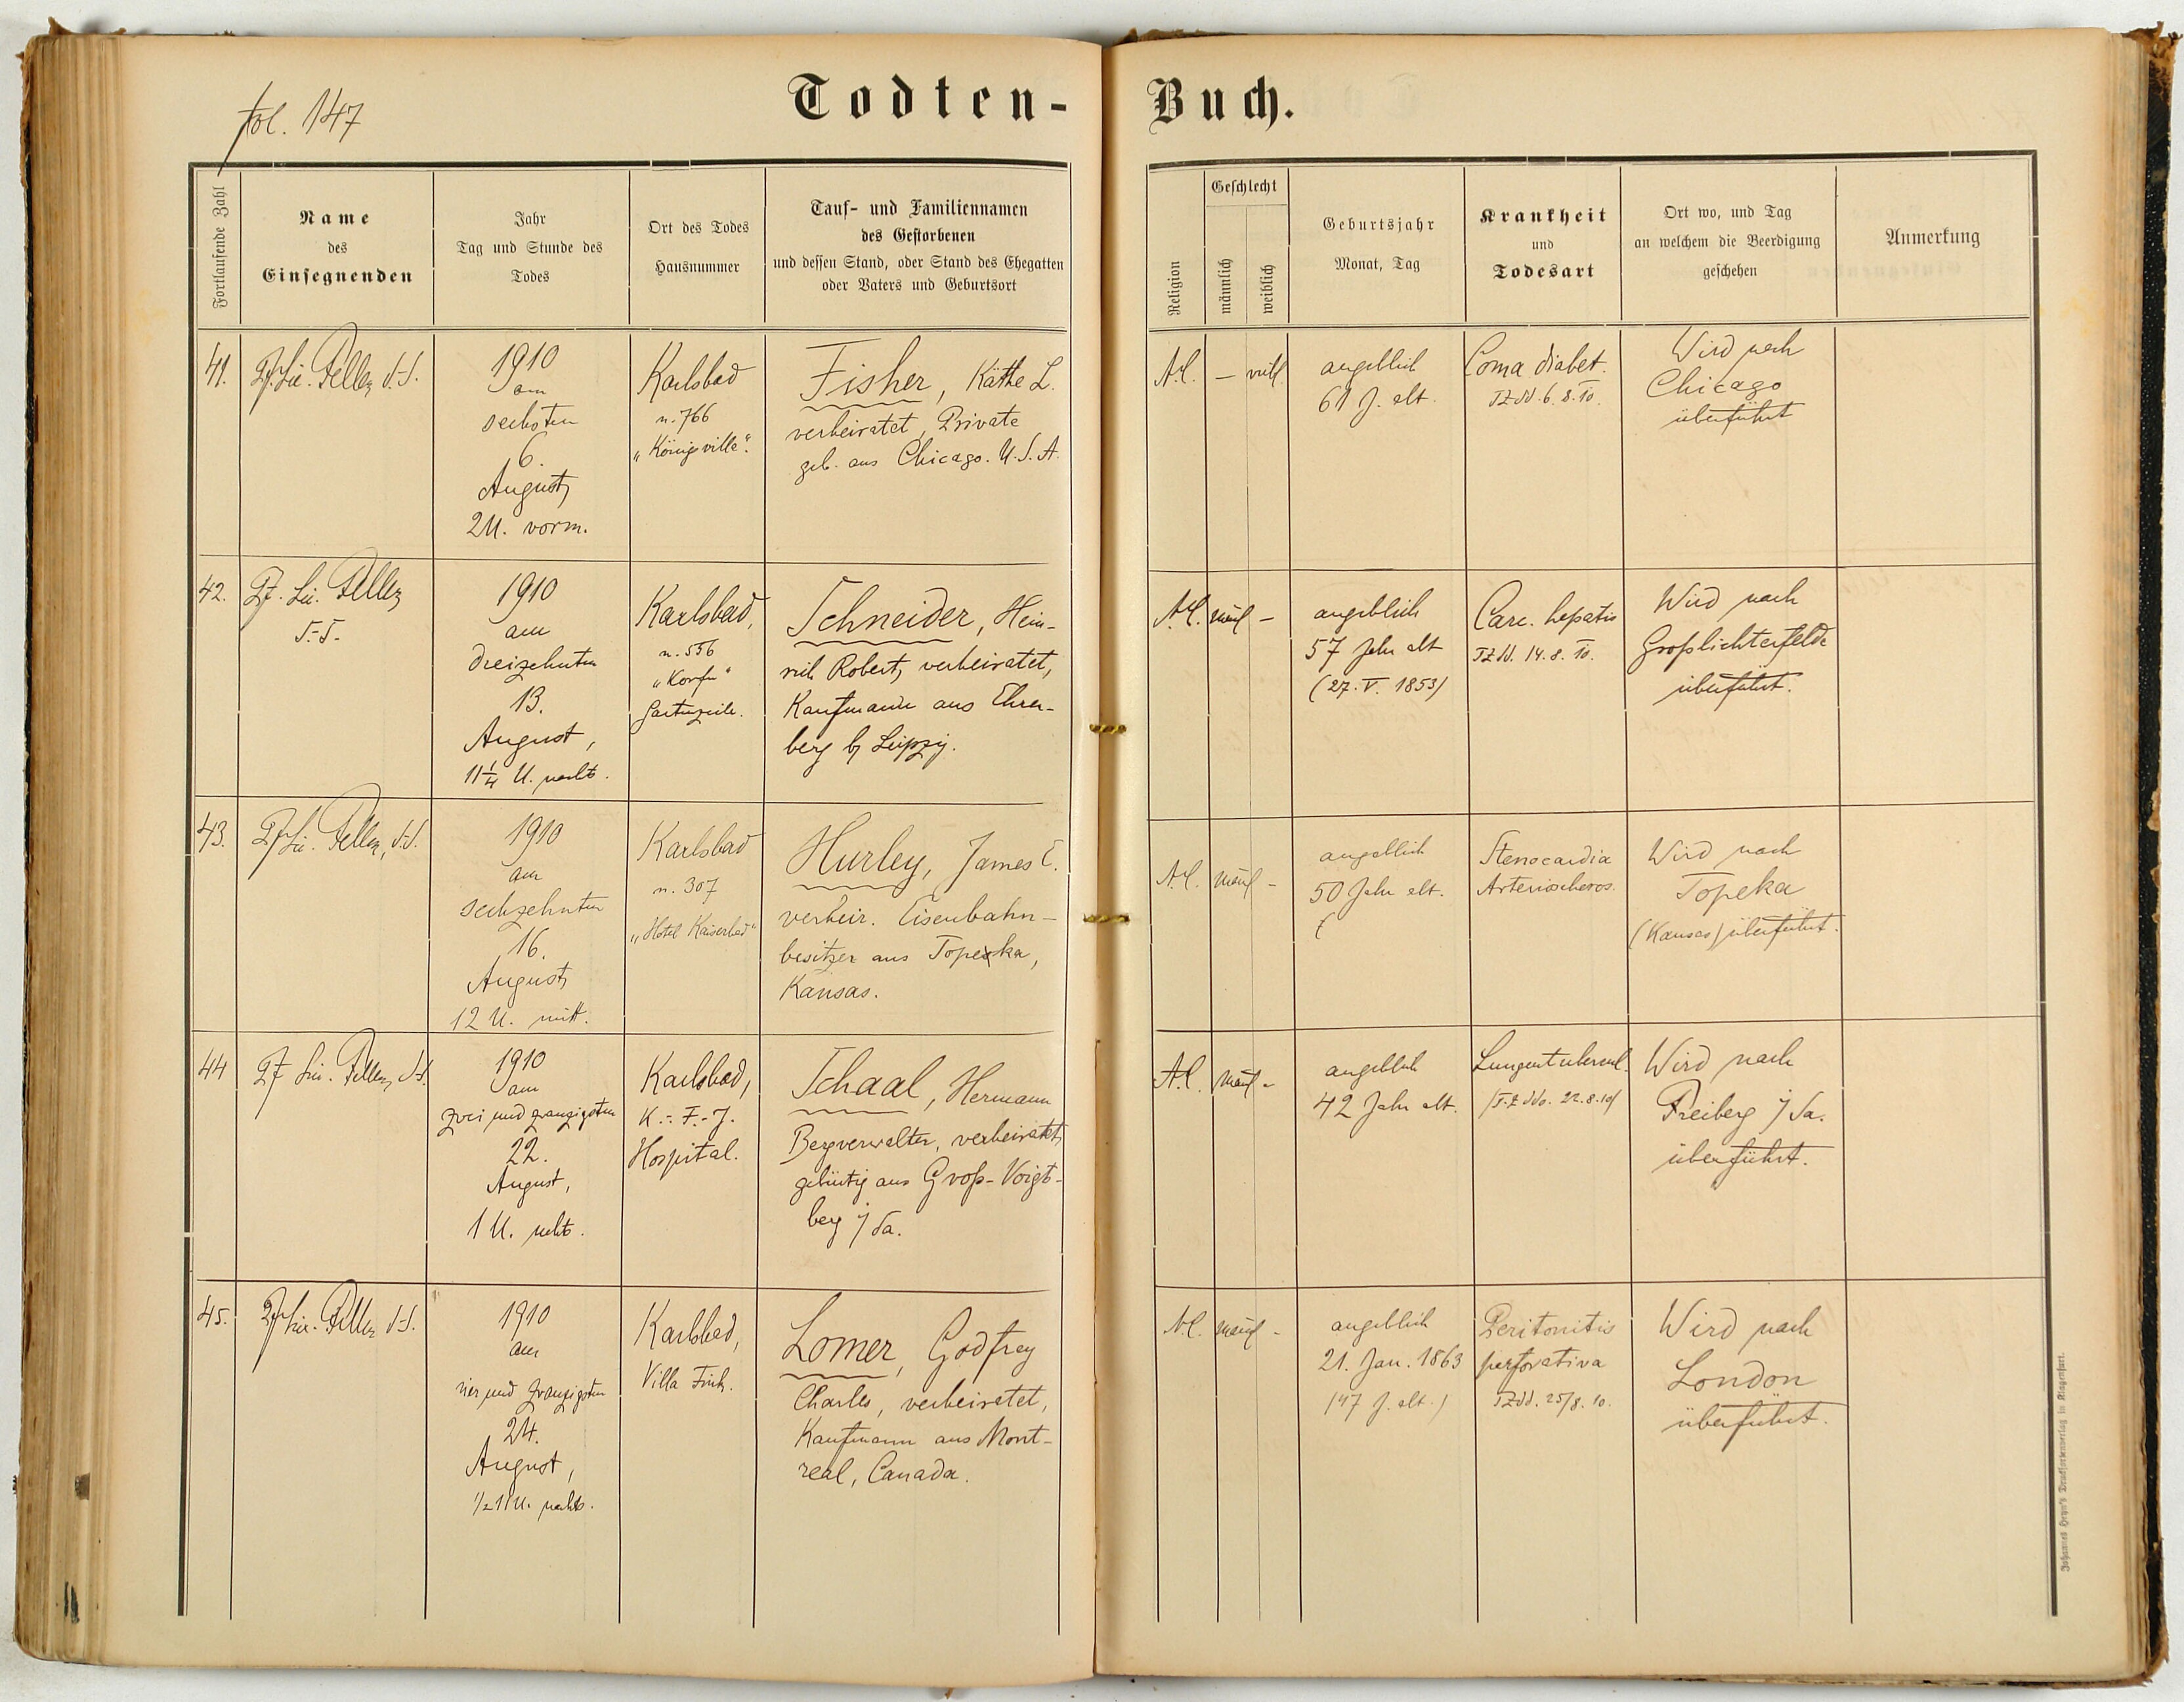 fol. 147
Todten-Buch.
Fortlaufende Zahl
Name
des
Einsegnenden
Jahr
Tag und Stunde des
Todes
Ort des Todes
Hausnummer
Tauf- und Familiennamen
des Gestorbenen
und dessen Stand, oder Stand des Ehegatten
oder Vaters und Geburtsort
Religion
Geschlecht
männlich
weiblich
Geburtsjahr
Monat, Tag
Krankheit
und
Todesart
Ort wo, und Tag
an welchem die Beerdigung
geschehen
Anmerkung
41.
Pf. Lic. Feller
1910
am
sechsten
6.
August,
2 U. vorm.
Karlsbad
n. 766
"Königsvilla".
Fisher, Käthe L.
verheiratet, Private
geb. aus Chicago. U.S.A.
A.C. –
angeblich
61 J. alt.
Coma diabet.
TZ dd. 6. 8. 10.
Wird nach
Chicago
überführt
42.
Pf. Lic. Feller
1910
am
dreizehnten
13.
August,
11¼ U. nachts.
Karlsbad,
n. 556
"Korfu"
Gartenzeile.
Schneider, Hein-
rich Robert, verheiratet,
Kaufmann aus Ehren-
berg b/ Leipzig.
A.C. –
angeblich
57 Jahr alt
(27. V. 1853)
Carc. hepatis
TZ dd. 14. 8. 10.
Wird nach
Großlichterfelde
überführt.
43.
Pf. Lic. Feller,
1910
am
sechzehnten
16.
August,
12 U. mitt.
Karlsbad
n. 307
"Hotel Kaiserbad"
Hurley, James E.
verheir. Eisenbahn-
besitzer aus Topeka,
Kansas.
A.C. –
angeblich
50 Jahr alt.
(
Stenocardia
Arterioscleros.
Wird nach
Topeka
(Kansas) überführt.
44
Pf. Lic. Feller,
1910
am
zwei und zwanzigsten
22.
August,
1 U. nchts.
Karlsbad,
K.-F.-J.
Hospital.
Schaal, Hermann
Bergverwalter, verheiratet,
gebürtig aus Groß-Voigts-
berg i/ Sa.
A.C. –
angeblich
42 Jahr alt.
Lungentuberul.
(T.Z ddo. 22.8.10)
Wird nach
Freiberg i/ Sa.
überführt.
45.
Pf. Lic. Feller
1910
am
vier und zwanzigsten
24.
August,
½ 11 U. nachts.
Karlsbad,
Villa Fink.
Lomer, Godfrey
Charles, verheiratet,
Kaufmann aus Mont-
real, Canada.
A.C. –
angeblich
21. Jan. 1863
(47 J. alt.)
Peritonitis
perforativa
TZ dd. 25/8. 10.
Wird nach
London
überführt.
Johannes Heyn's Drucksortenverlag in Klagenfurt.